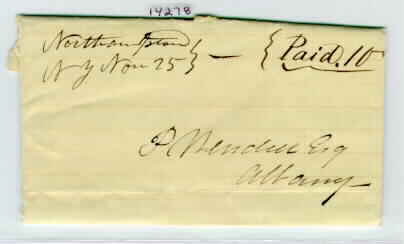 14278
Northampton
N Y Nov 25 } — { Paid. 10
P Wendell Esq
Albany